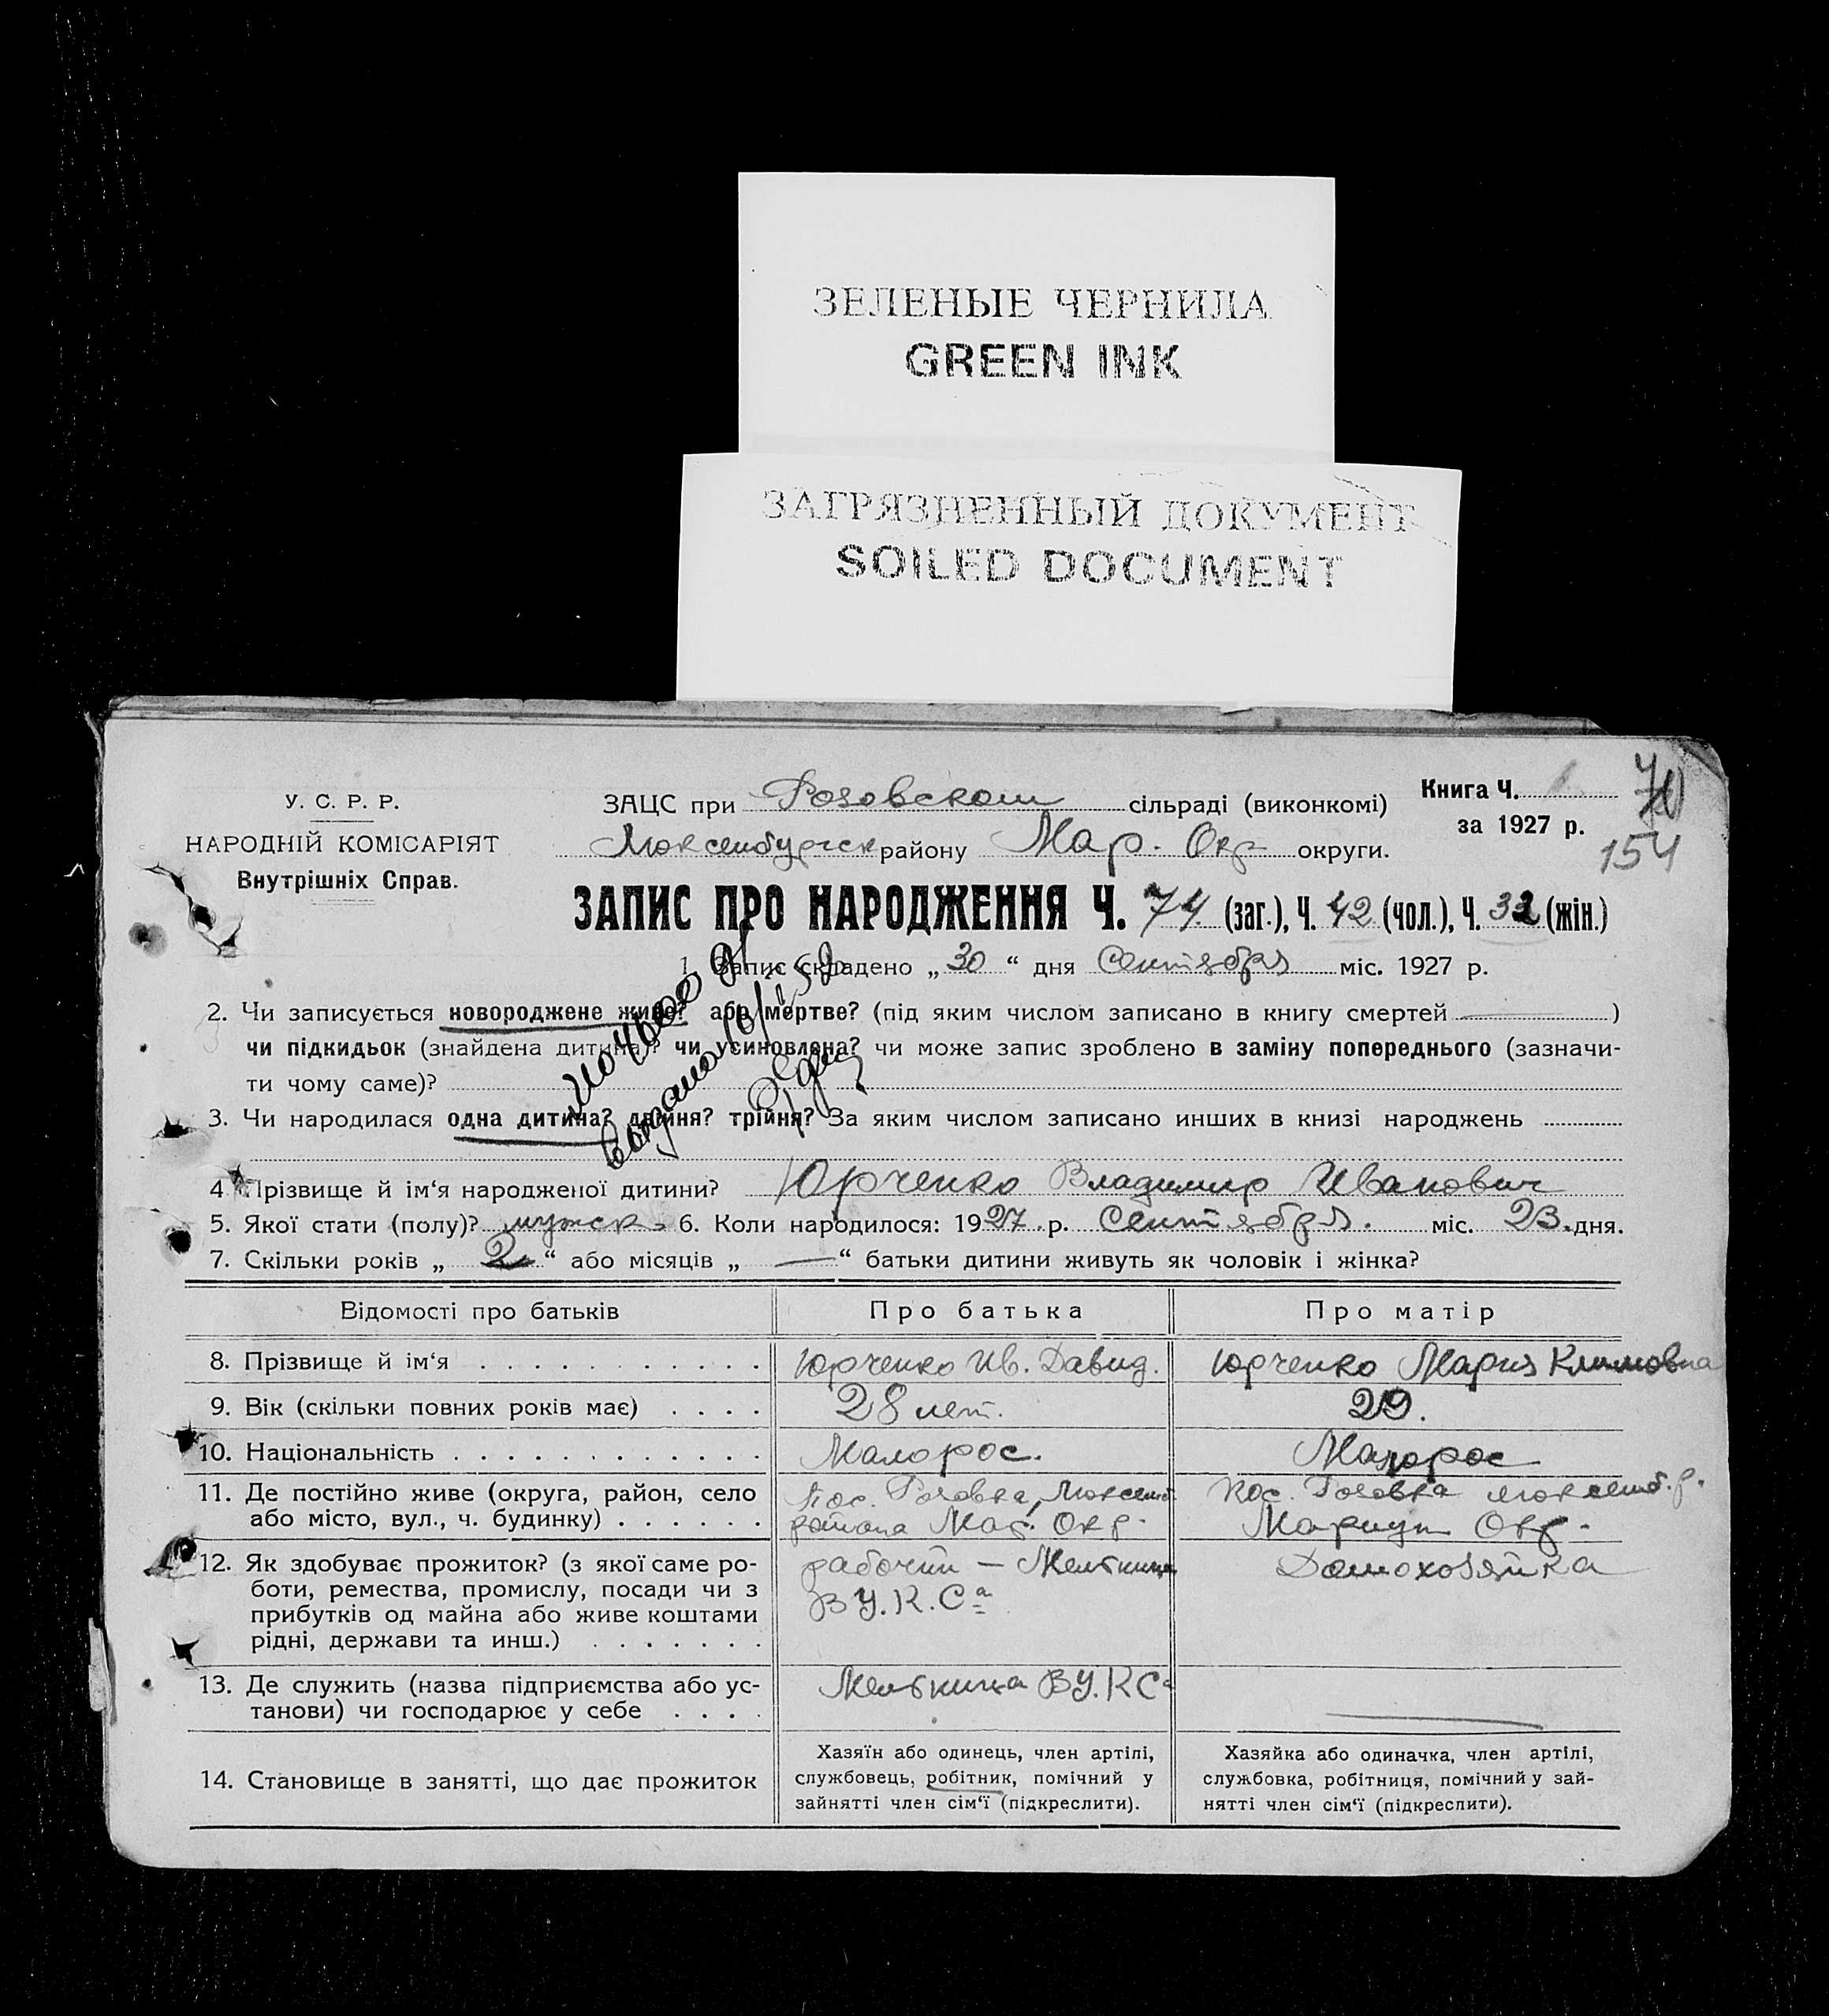 ЗЕЛЕНЫЕ ЧЕРНИЛА
GREEN INK
ЗАГРЯЗНЕННЫЙ ДОКУМЕНТ
SOILED DOCUMENT
У. С. Р. Р.
НАРОДНІЙ КОМІСАРІЯТ
Внутрішніх Справ.
ЗАЦС при Розовском сільраді (виконкомі)
Люксембургск району Мар. Окр округи.
Книга Ч.
за 1927 р.
70
154
ЗАПИС ПРО НАРОДЖЕННЯ Ч. 74 (заг.), Ч. 42 (чол.), Ч. 32 (жін.)
1. Запис складено „30“ дня Сентября міс. 1927 р.
2. Чи записується новороджене живе? або мертве? (під яким числом записано в книгу смертей —)
чи підкидьок (знайдена дитина)? чи усиновлена? чи може запис зроблено в заміну попереднього (зазначи-
ти чому саме)?
3. Чи народилася одна дитина? двійня? трійня? За яким числом записано инших в книзі народжень
4. Прізвище й ім‘я народженої дитини? Юрченко Владимир Иванович
5. Якої стати (полу)? мужск. 6. Коли народилося: 1927 р. Сентября. міс. 23. дня.
7. Скільки років „2“ або місяців „—“ батьки дитини живуть як чоловік і жінка?
Відомості про батьків Про батька Про матір
8. Прізвище й ім‘я Юрченко Ив. Давид. Юрченко Мария Климовна
9. Вік (скільки повних років має) 28 лет. 29.
10. Національність Малорос. Малорос
11. Де постійно живе (округа, район, село Пос. Розовка, Люксемб. Пос. Розовка Люксемб. р.
або місто, вул., ч. будинку) района Мар. Окр. Мариуп Окр.
12. Як здобуває прожиток? (з якої саме ро- рабочий — Мельница Домохозяйка
боти, ремества, промислу, посади чи з В У. К. Са
прибутків од майна або живе коштами
рідні, держави та инш.)
13. Де служить (назва підприємства або ус- Мельница ВУ. К Са —
танови) чи господарює у себе
14. Становище в занятті, що дає прожиток
Хазяїн або одинець, член артілі,
службовець, робітник, помічний у
зайнятті член сім‘ї (підкреслити).
Хазяйка або одиначка, член артілі,
службовка, робітниця, помічний у зай-
нятті член сім‘ї (підкреслити).